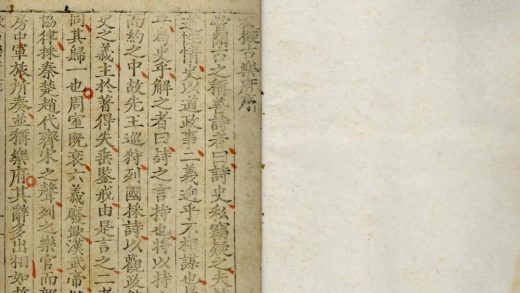 擬古樂府序
聞古之稱善詩者曰詩史私竊疑之夫
道性情史以道政事二義迥乎不相謀也
爲史乎解之者曰詩之言持也將以持
而約之中故先王巡狩列國採詩以觀政
史之義主於著得失垂鑒戒由是言之二者
同其歸一也周室既衰六義廢缺漢武帝
協律採秦楚趙代齊宋之聲列之樂官而
房中軍旅所奏並稱樂府其辭多出相如